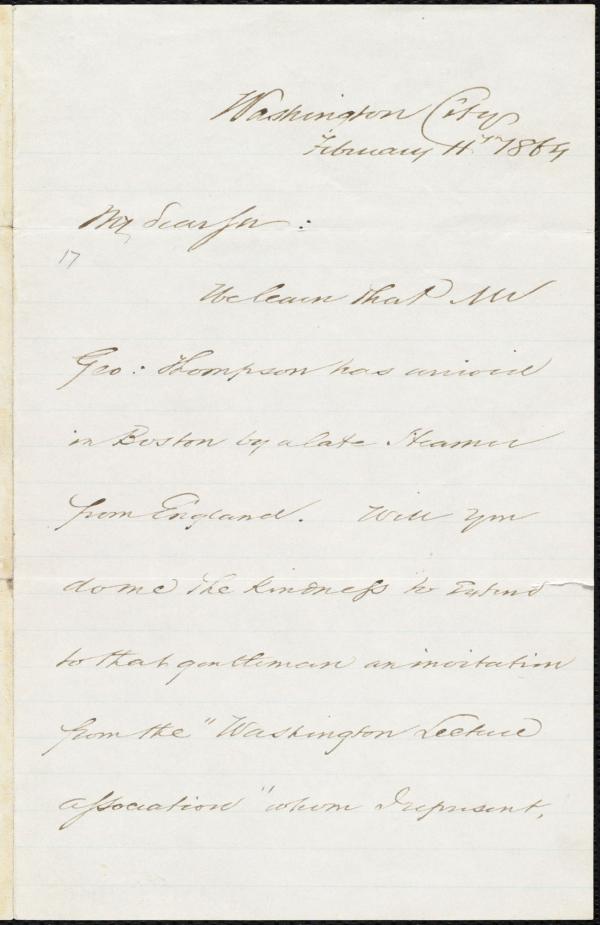 Washington City
February 11th 1864
My dear Sir :
17
We learn that Mr
Geo: Thompson has arrived
in Boston by a late Steamer
from England. Will you
do me the kindness to extend
to that gentleman an invitation
from the "Washington Lecture
Association" whom I represent,